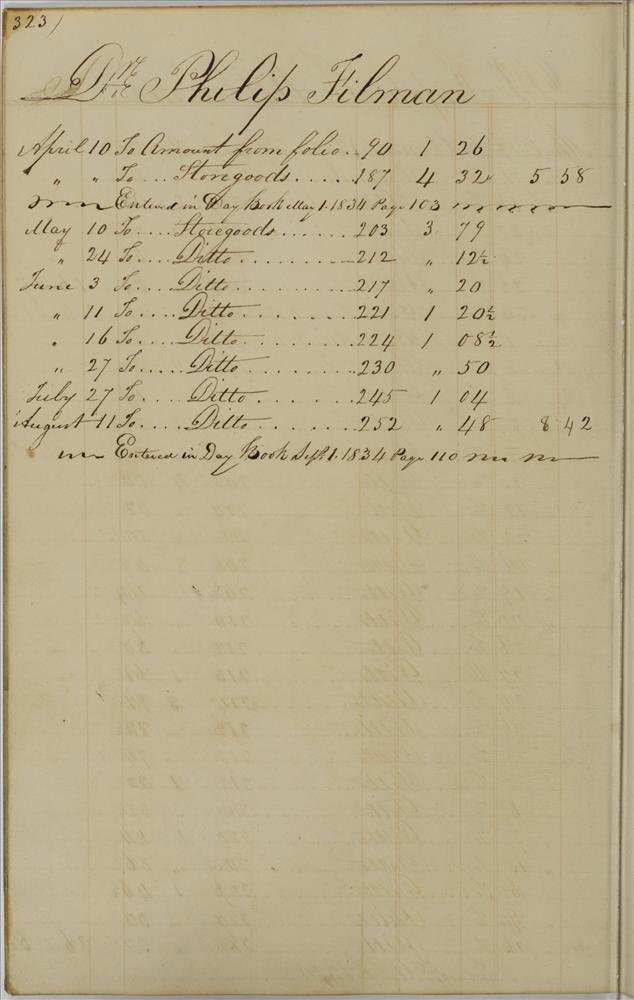 323)
Dr Philip Filman
April 10 To Amount from folio .. 90 1 26
" " To ... Storegoods ..... 187 4 32 5 58
Entered in Day Book May 1. 1834 Page 103
May 10 To .... Storegoods ...... 203 3 79
" 24 To .... Ditto ......... 212 " 12½
June 3 To .... Ditto ......... 217 " 20
" 11 To .... Ditto ......... 221 1 20½
" 16 To .... Ditto ......... 224 1 08½
" 27 To .... Ditto ......... 230 " 50
July 27 To .... Ditto ......... 245 1 04
August 11 To .... Ditto ......... 252 " 48 8 42
Entered in Day Book Sept. 1. 1834 Page 110